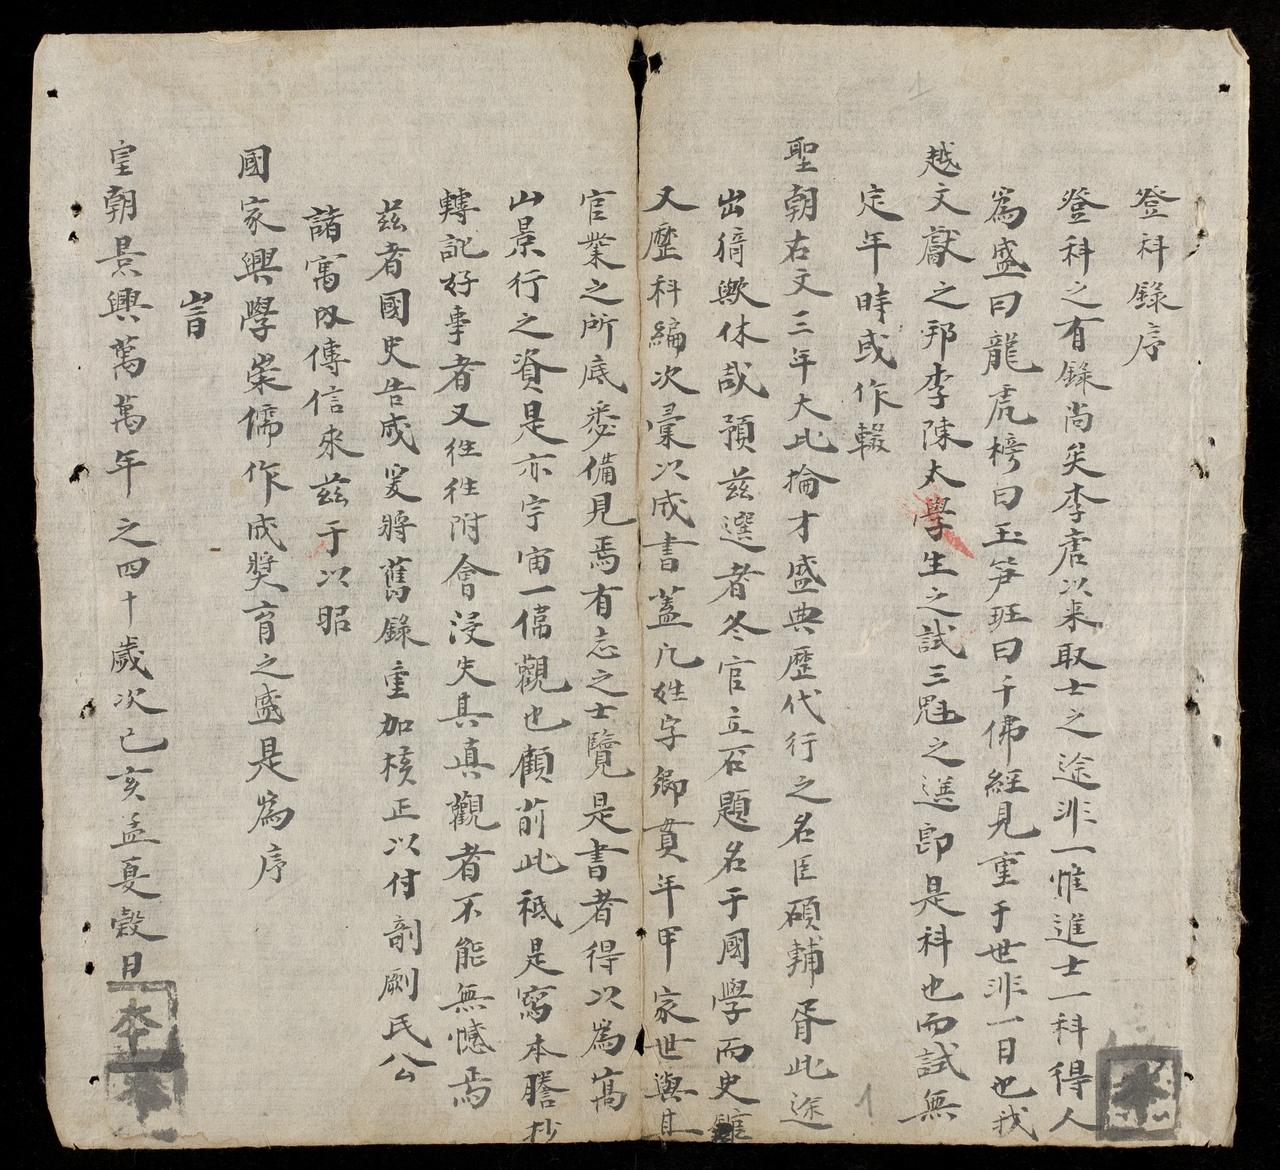 登科錄序
登科之有錄尚矣李唐以来取士之途非一惟進士一科得人
為盛曰龍虎榜曰玉笋班曰千佛經見重于世非一日也我
越文獻之邦李陳太學生之試三魁之選即是科也而試無
定年時或作輟
聖朝右文三年大比掄才盛典歷代行之名臣碩輔胥此途
出猗歟休哉預茲選者冬官立石題名于國學而史館
又歷科編次彙以成書蓋凡姓字鄉貫年甲家世與其
官業之所底悉備見焉有志之士覽是書者得以為高
山景行之資是亦宇宙一偉觀也顧前此秪是寫本謄抄
轉訛好事者又徃徃附會浸失其真觀者不能無憾焉
茲者國史告成爰將舊錄重加檢正以付剞劂氏公
諸寓内傳信來茲于以昭
國家興學崇儒作成奬育之盛是為序
旹
皇朝景興萬萬年之四十歲次己亥孟夏穀日
本
本
本
1
1